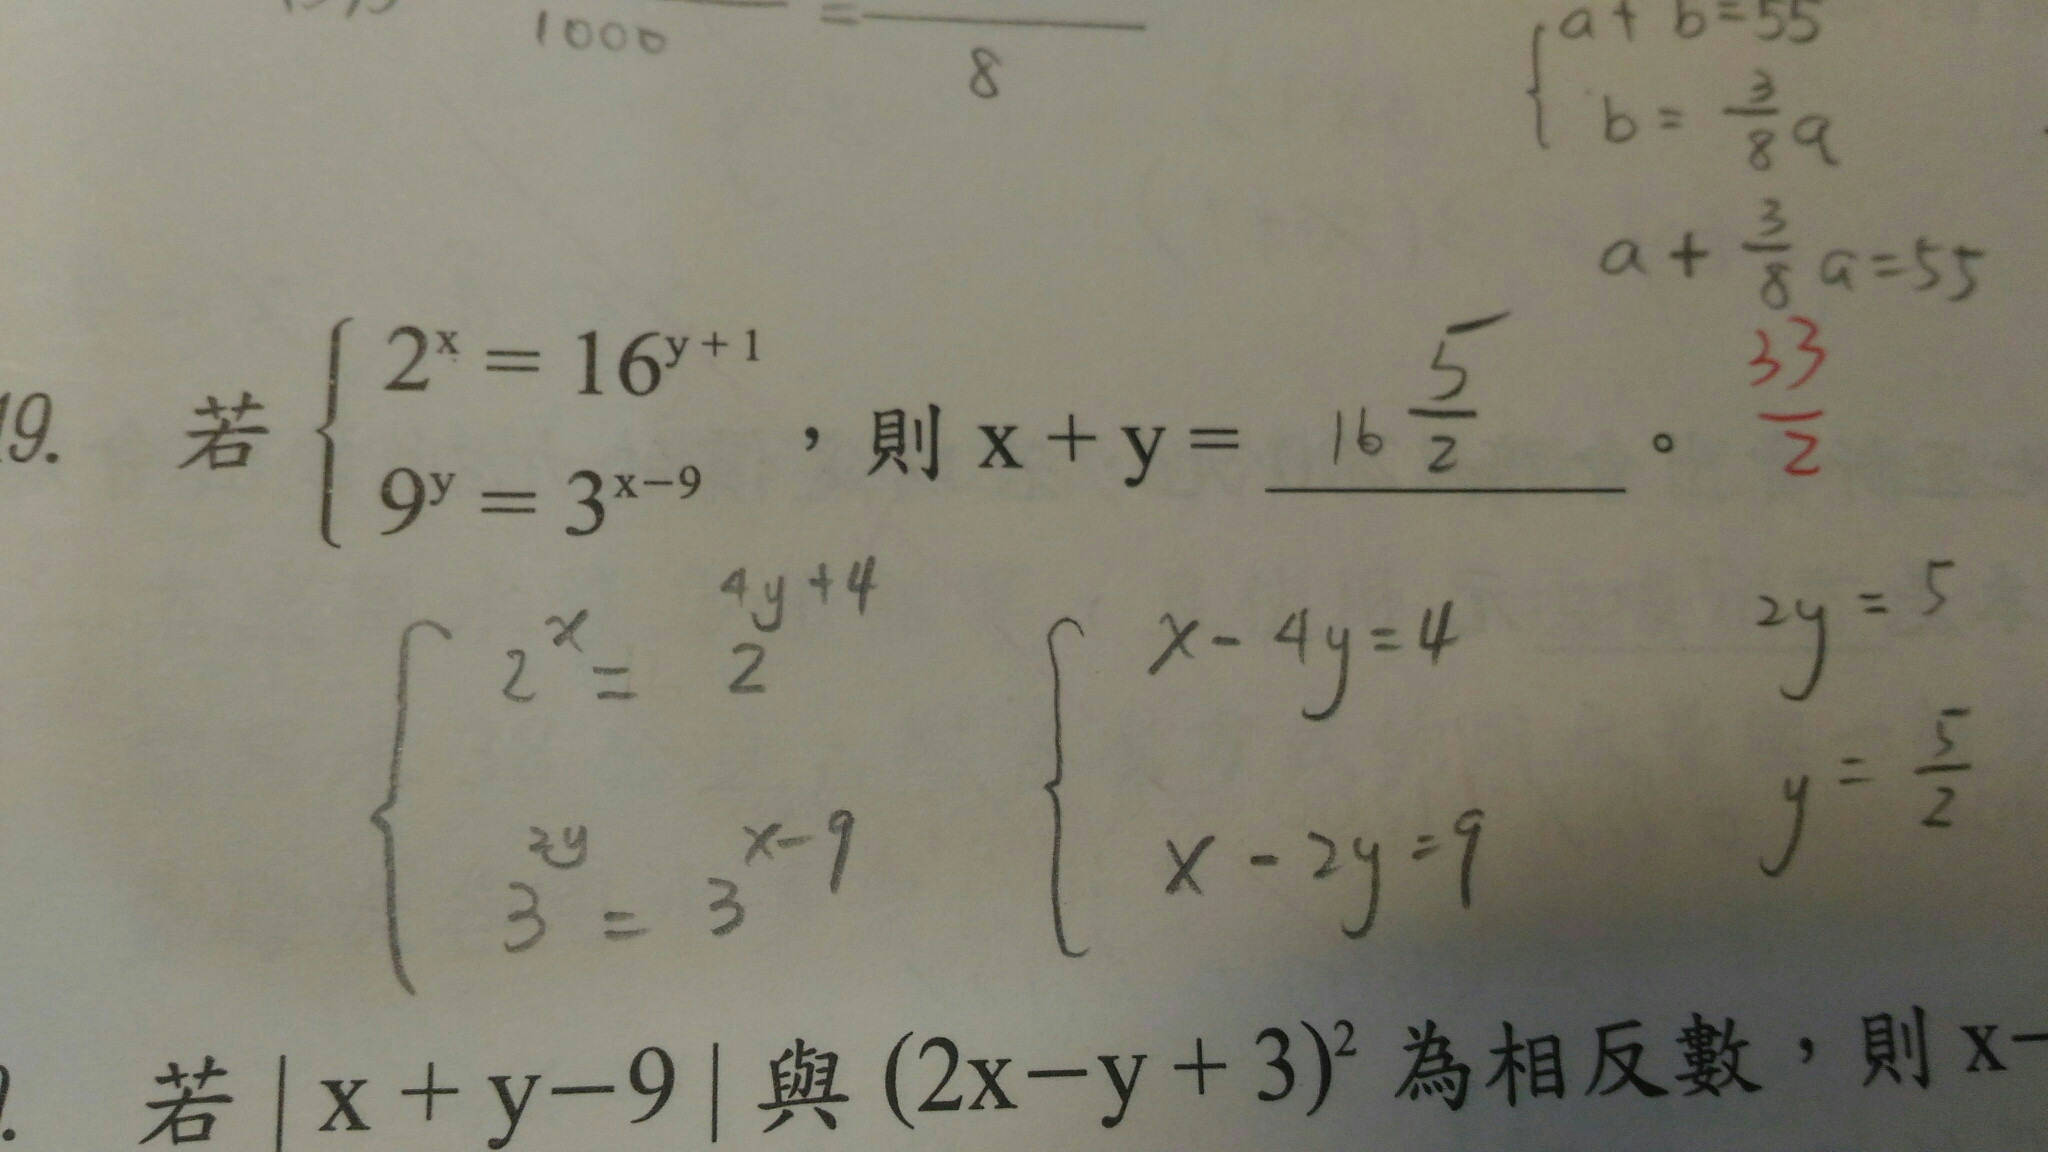 1000 = 8
a + b = 55
b = 3/8 a
a + 3/8 a = 55
19. 若 { 2^x = 16^{y+1} , 9^y = 3^{x-9} ,則 x + y = 16 5/2 。 33/2
2^x = 2^{4y+4}
x - 4y = 4
2y = 5
3^{2y} = 3^{x-9}
x - 2y = 9
y = 5/2
若 | x + y - 9 | 與 (2x - y + 3)² 為相反數,則 x -